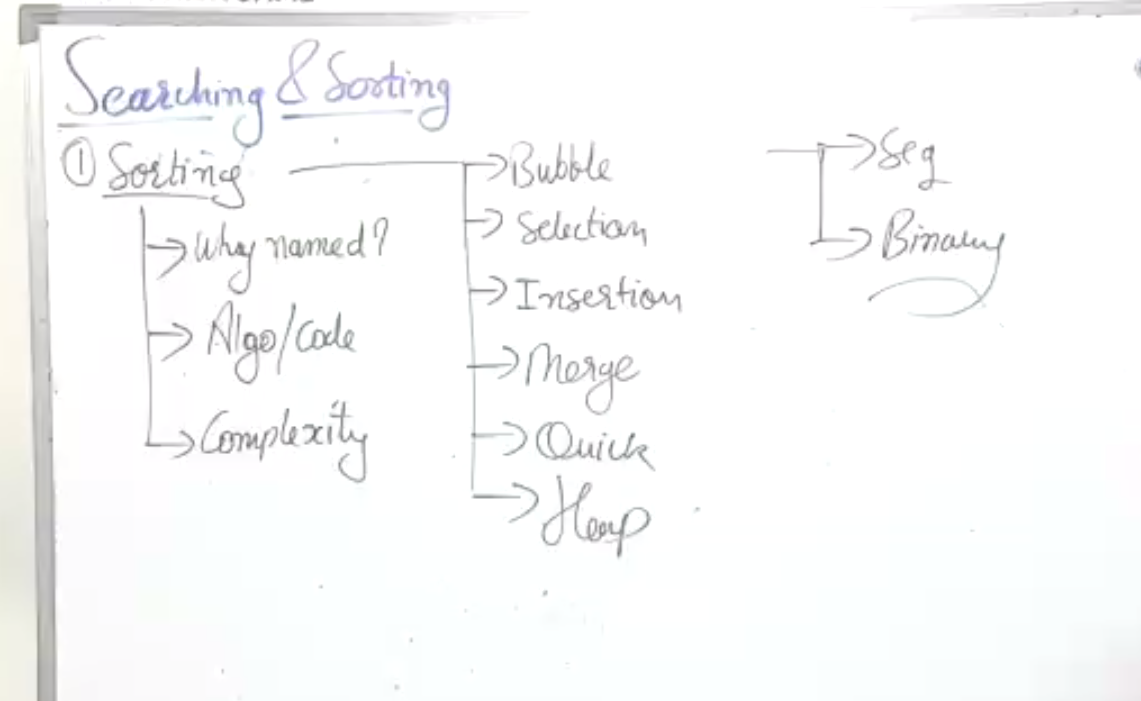 Searching & Sorting
① Sorting
Why named?
Algo/Code
Complexity
Bubble
Selection
Insertion
Merge
Quick
Heap
Seq
Binary